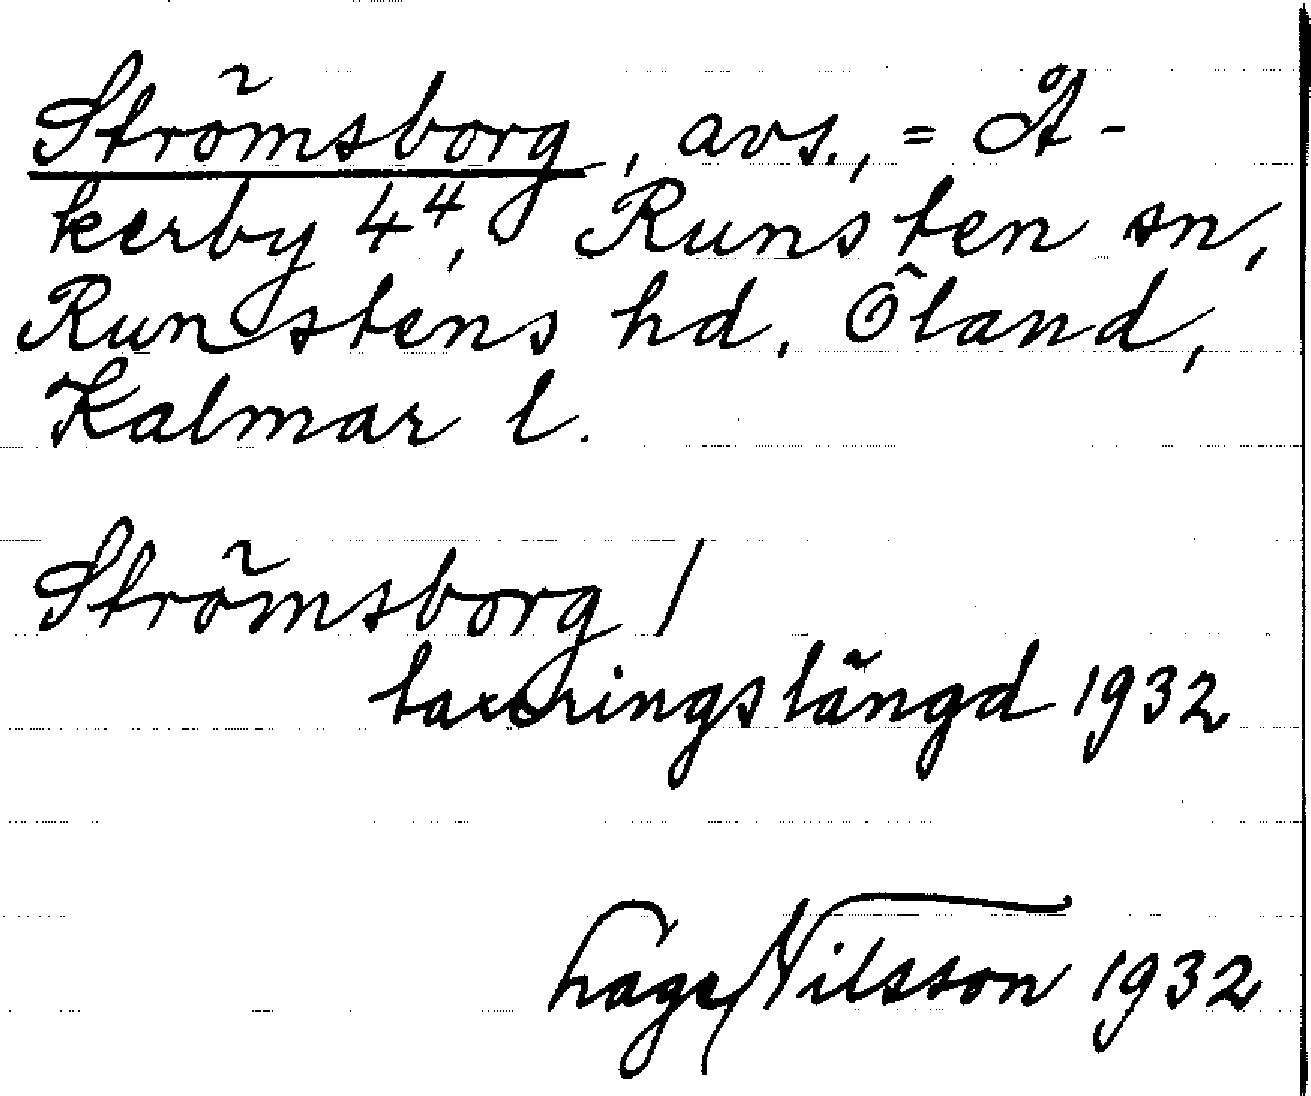 Strömsborg, avs., = Å-
kerby 4⁴, Runsten sn,
Runstens hd, Öland,
Kalmar l.
Strömsborg /
taxeringslängd 1932
Hage Nilsson 1932